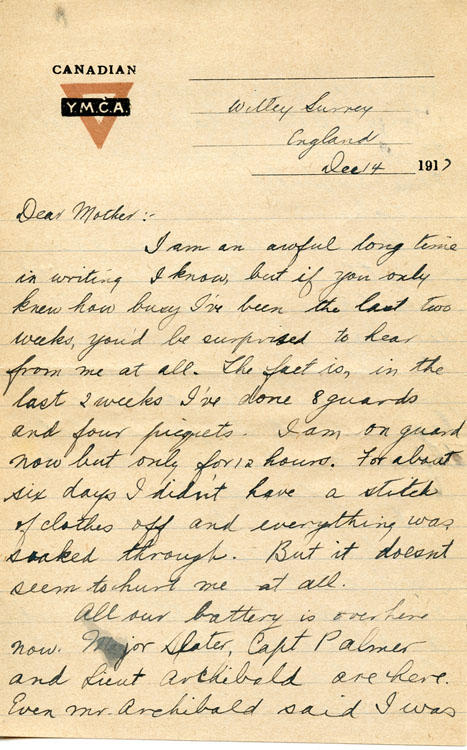 CANADIAN
Y.M.C.A.
Witley Surrey
England
Dec 14 1917
Dear Mother:-
I am an awful long time
in writing I know, but if you only
knew how busy I've been the last two
weeks, you'd be surprised to hear
from me at all. The fact is, in the
last 2 weeks I've done 8 guards
and four picquets. I am on guard
now but only for 12 hours. For about
six days I didn't have a stitch
of clothes off and everything was
soaked through. But it doesn't
seem to hurt me at all.
All our battery is over here
now. Major Slater, Capt Palmer
and Lieut Archibald are here.
Even Mr. Archibald said I was